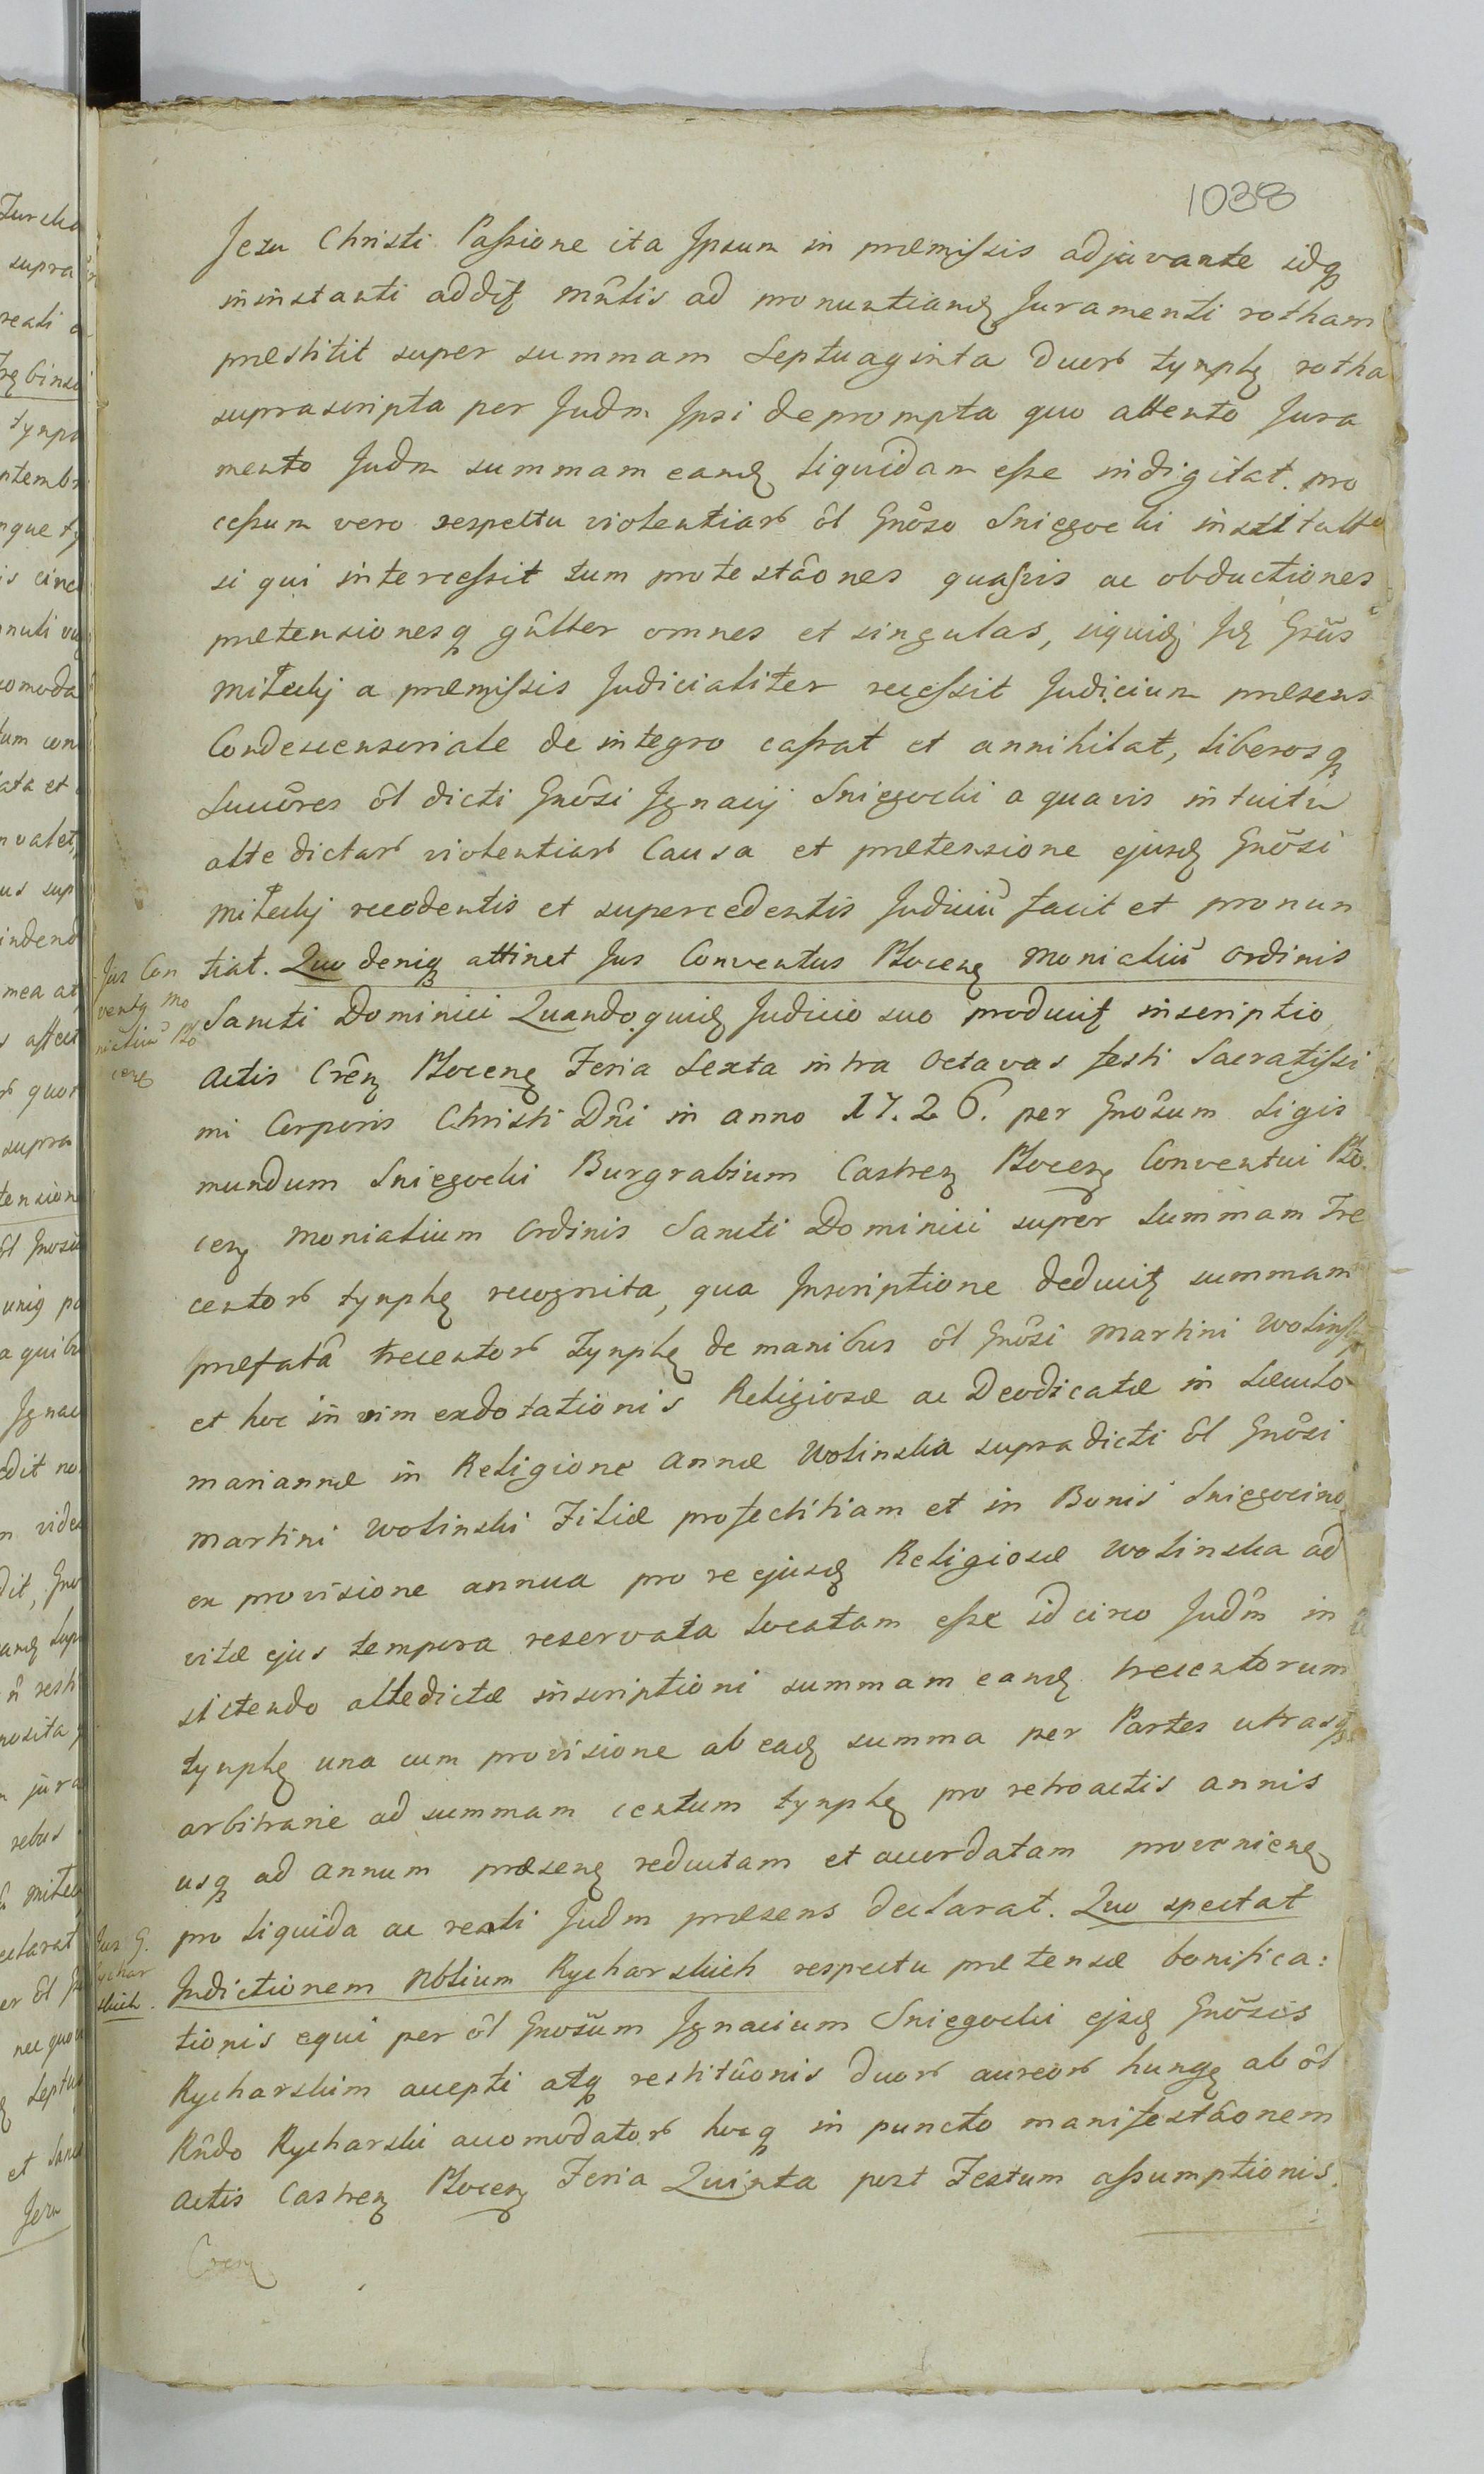 1038
Jesu Christi Passione ita Ipsum in præmissis adjuvante idq
ininstanti addit mûlis ad pronuntiand Juramenti rotham
præstitit super summam Septuaginta Duor tynph rotha
suprascripta per Judm Ipsi deprompta quo attento Jura
mento Judm summam eand liquidam esse indigitat. pro
cessum vero respectu violentiar ôl Gnôso Sniegocki institutu
si qui intercessit tum protestâones quasvis ac obductiones
prætensionesq gâlter omnes et singulas, siquid Jd Gnûs
Mitecky a præmissis Judicialiter recessit Judicium præsens
Condescensoriale de integro cassat et annihilat, liberosq
Succôres ôl dicti Gnôsi Ignacij Sniegocki a quavis intuitu
alte dictar violentiar Causa et prætensione ejusd Gnôsi
Mitecky recedentis et supercedentis Judiciû facit et pronun
tiat. Quo deniq attinet Jus Conventus Plocen Monialiû Ordinis
Jus Con
ventq Mo
nialiû Plo
cen
Sancti Dominici Quandoquid Judicio suo producit inscriptio
Actis Crên Plocen Feria Sexta intra Octavas festi Sacratissi
mi Corporis Christi Dñi in Anno 17.26. per Gnôsum Sigis
mundum Sniegocki Burgrabium Castren Plocen Conventui Plo
cen Monialium Ordinis Sancti Dominici super Summam Tre
centor tynph recognita, qua Inscriptione deducit summam
præfatâ trecentor Tynph de manibus ôl Gnôsi Martini Wolinsk
et hoc in vim exdotationis Religiosæ ac Deodicatæ in sæculo
Mariannæ in Religione Annæ Wolinska supradicti ôl Gnôsi
Martini Wolinski Filiæ profectitiam et in Bonis Sniegocino
ex provisione annua pro re ejusd Religiosæ Wolinska ad
vitæ ejus tempora reservata locatam esse idcirco Judm in
sistendo altedictæ inscriptioni summam eand trecentorum
tynph una cum provisione ab ead summa per Partes utrasq
arbitrarie ad summam centum tynph pro retroactis annis
usq ad annum præsen reductam et accordatam provenien
pro liquida ac reali Judm præsens declarat. Quo spectat
Jus G.
Rychar
skich.
Indictionem Nblium Rycharskich respectu prætensæ bonifica:
tionis equi per ôl Gnosûm Ignacium Sniegocki ejsd Gnôsis
Rycharskim accepti atq restitûonis duor aureor hung ab ôl
Rñdo Rycharski accomodator hocq in puncto manifestâonem
Actis Castren Plocen Feria Quinta post Festum Assumptionis